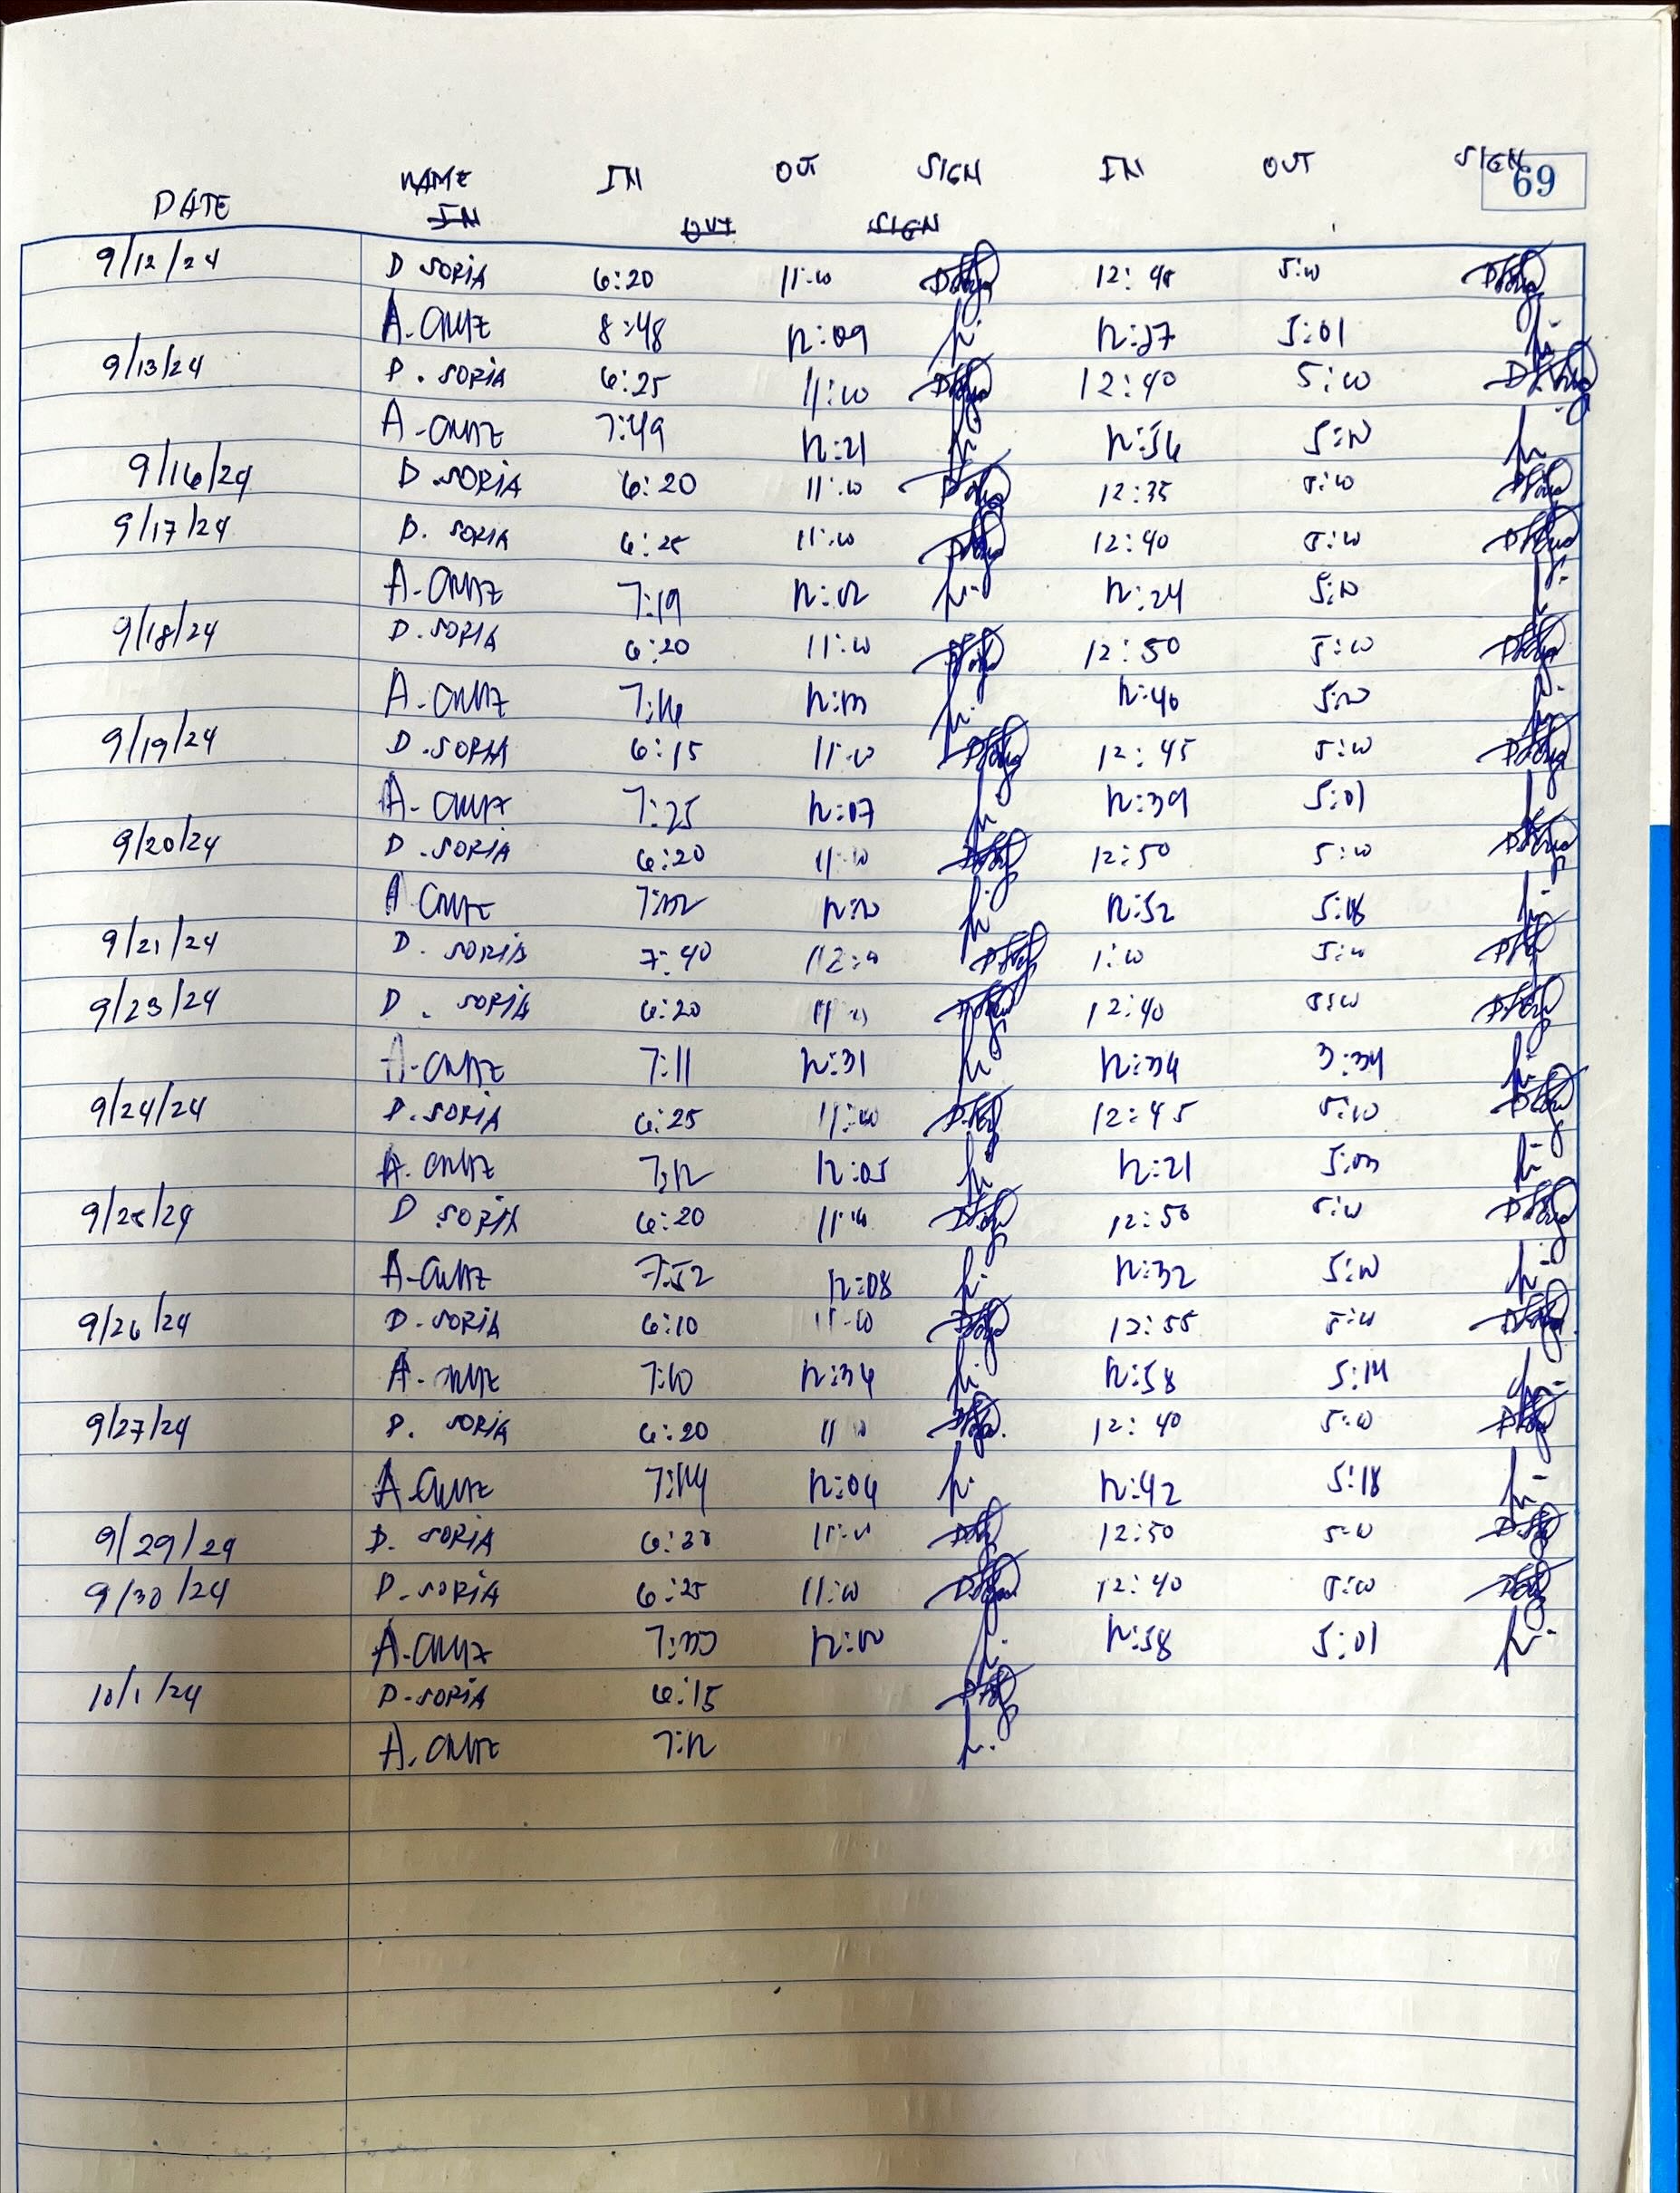 NAME IN OUT SIGN IN OUT SIGN
69
DATE IN OUT SIGN
9/12/24 D SORIA 6:20 11:00 12:45 5:00
A. CRUZ 8:48 12:09 12:37 5:01
9/13/24 D. SORIA 6:25 11:00 12:40 5:00
A-CRUZ 7:49 12:21 12:56 5:00
9/16/24 D. SORIA 6:20 11:00 12:35 5:00
9/17/24 D. SORIA 6:25 11:00 12:40 5:00
A-CRUZ 7:19 12:02 12:24 5:00
9/18/24 D. SORIA 6:20 11:00 12:50 5:00
A-CRUZ 7:16 12:40 5:00
9/19/24 D. SORIA 6:15 11:00 12:45 5:00
A-CRUZ 7:25 12:07 12:39 5:01
9/20/24 D. SORIA 6:20 11:00 12:50 5:00
A CRUZ 12:52 5:18
9/21/24 D. SORIA 7:40 1:00 5:00
9/23/24 D. SORIA 6:20 12:40 5:00
A-CRUZ 7:11 12:31 12:34 3:34
9/24/24 D. SORIA 6:25 11:00 12:45 5:00
A. CRUZ 7:12 12:05 12:21 5:03
9/25/24 D SORIA 6:20 11:00 12:50 5:00
A-CRUZ 7:52 12:08 12:32 5:00
9/26/24 D. SORIA 6:10 11:00 12:55 5:00
A. CRUZ 7:10 12:36 12:58 5:14
9/27/24 D. SORIA 6:20 12:40 5:00
A-CRUZ 7:14 12:06 12:42 5:18
9/29/24 D. SORIA 6:30 11:00 12:50 5:00
9/30/24 D-SORIA 6:25 11:00 12:40 5:00
A-CRUZ 12:00 12:58 5:01
10/1/24 D-SORIA 6:15
A. CRUZ 7:12